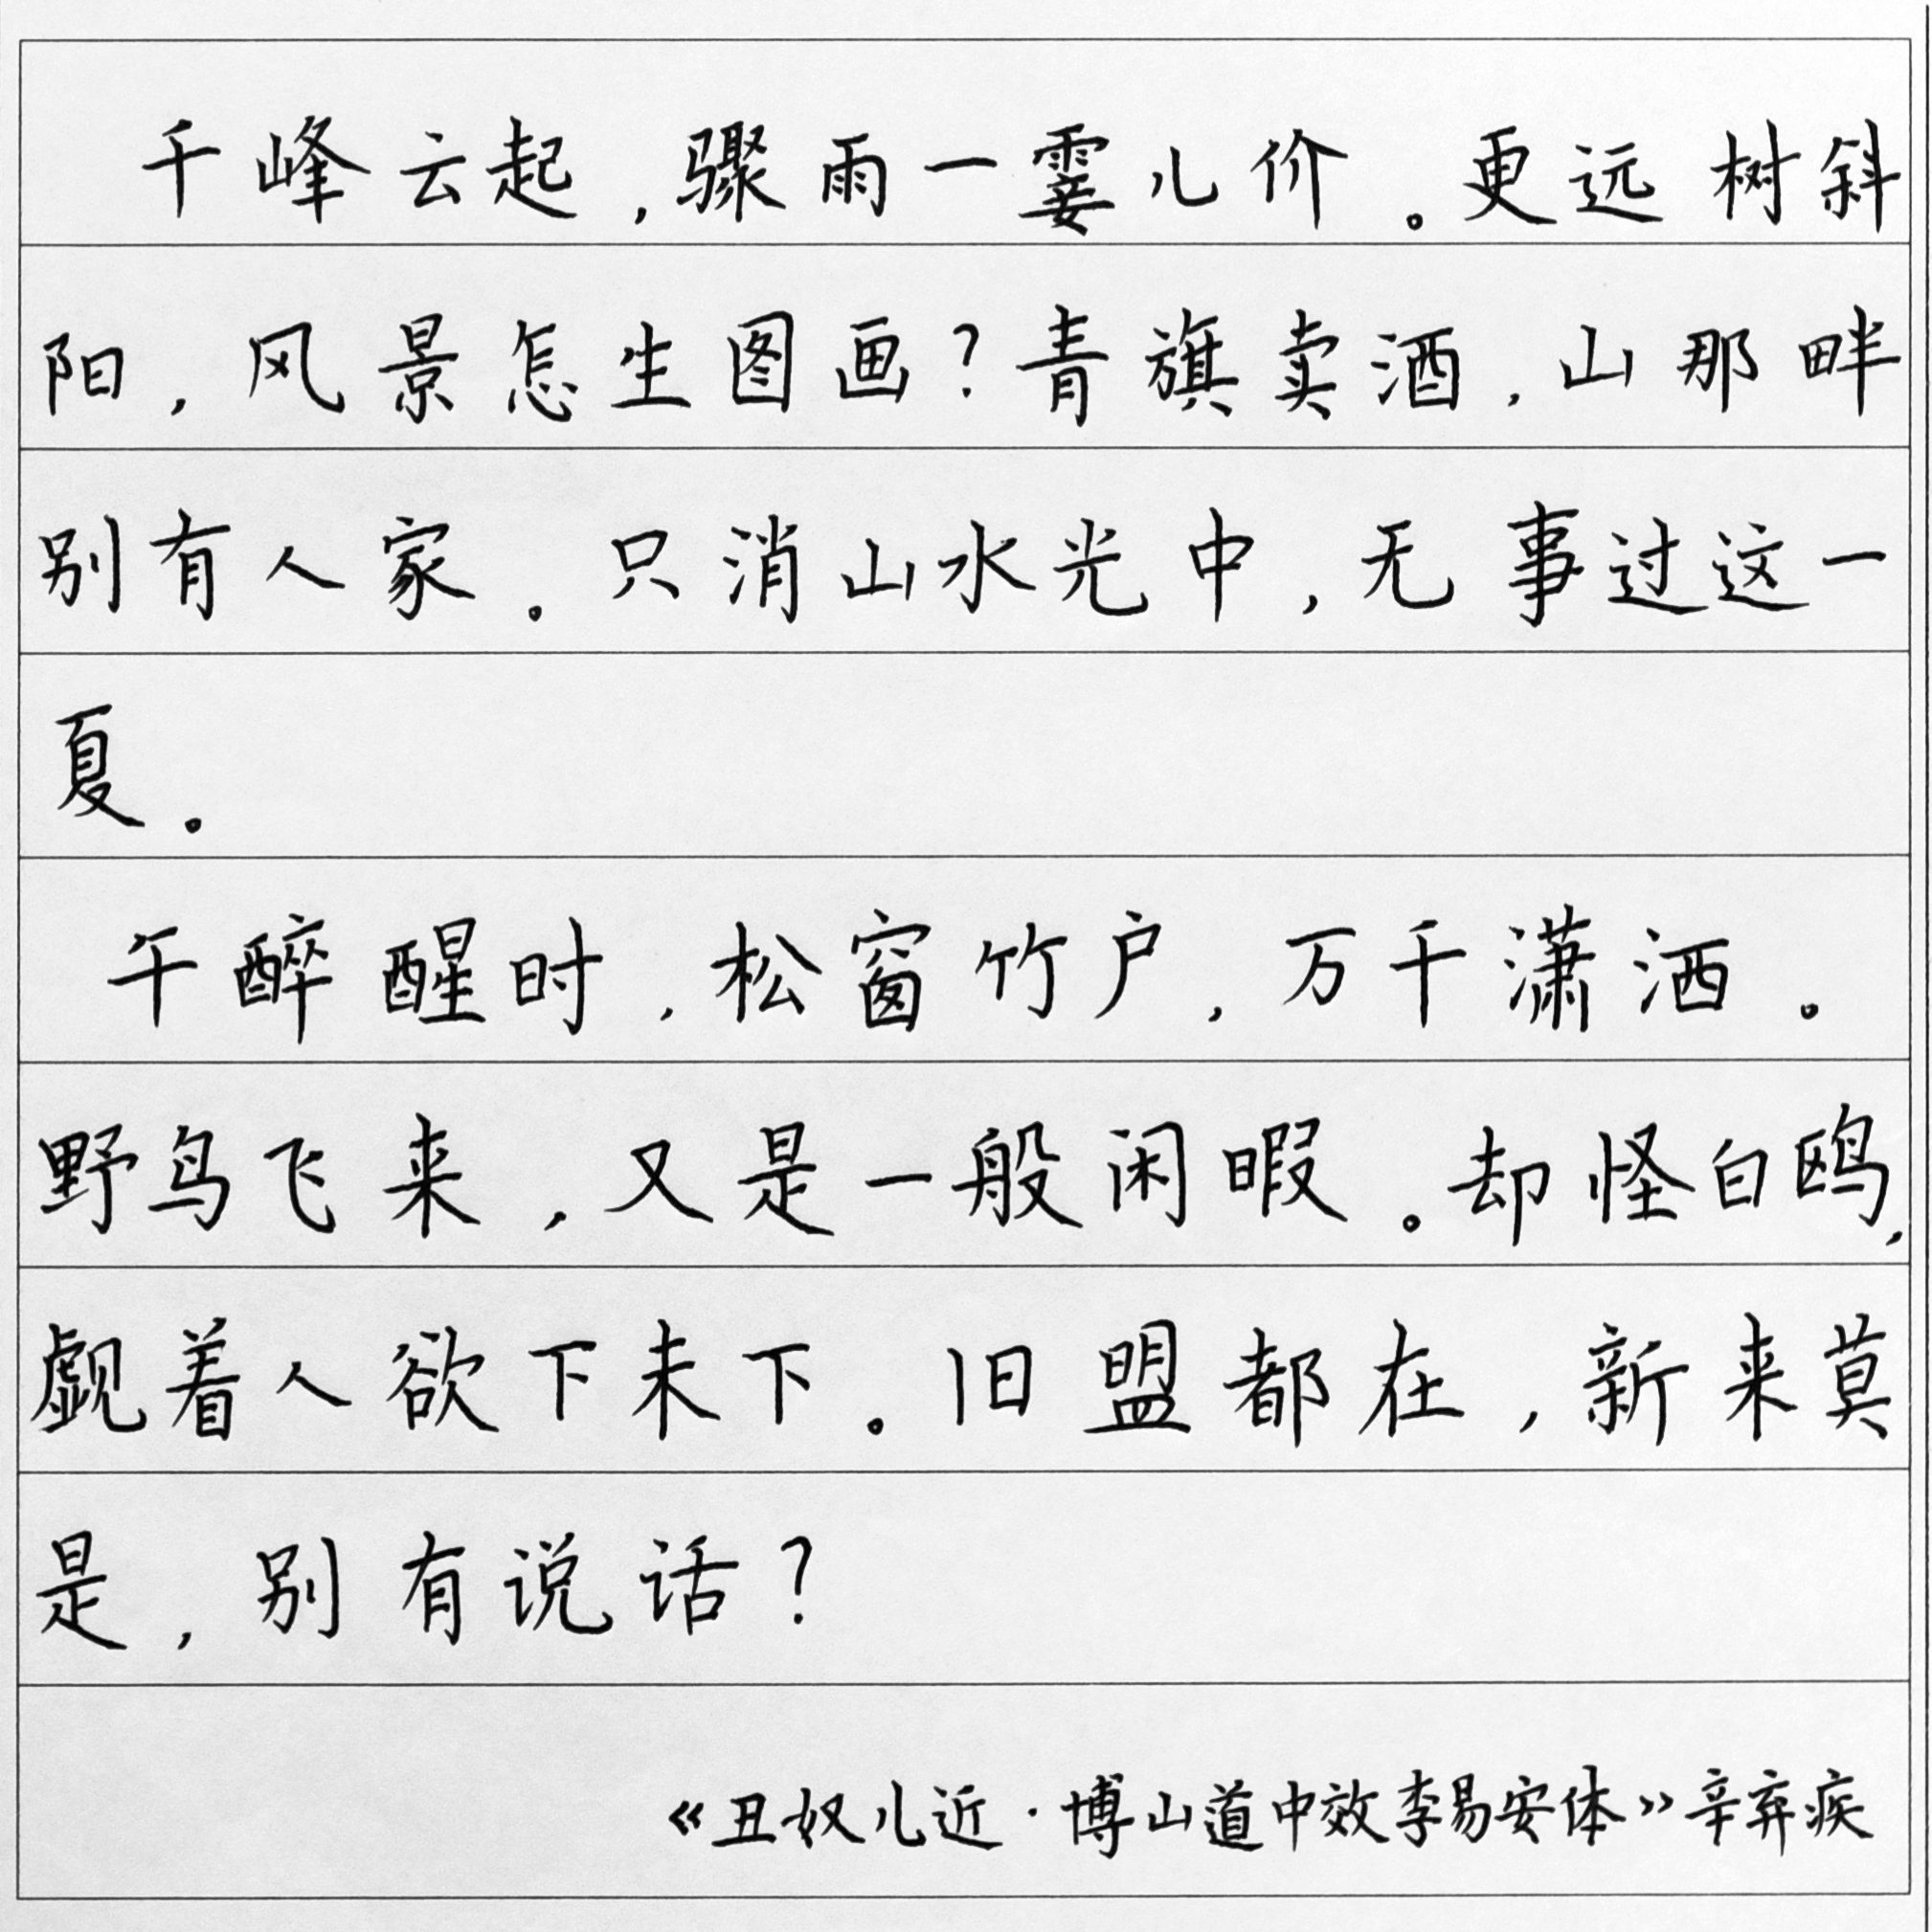 千峰云起，骤雨一霎儿价。更远树斜
阳，风景怎生图画？青旗卖酒，山那畔
别有人家。只消山水光中，无事过这一
夏。
午醉醒时，松窗竹户，万千潇洒。
野鸟飞来，又是一般闲暇。却怪白鸥，
觑着人欲下未下。旧盟都在，新来莫
是，别有说话？
《丑奴儿近·博山道中效李易安体》辛弃疾